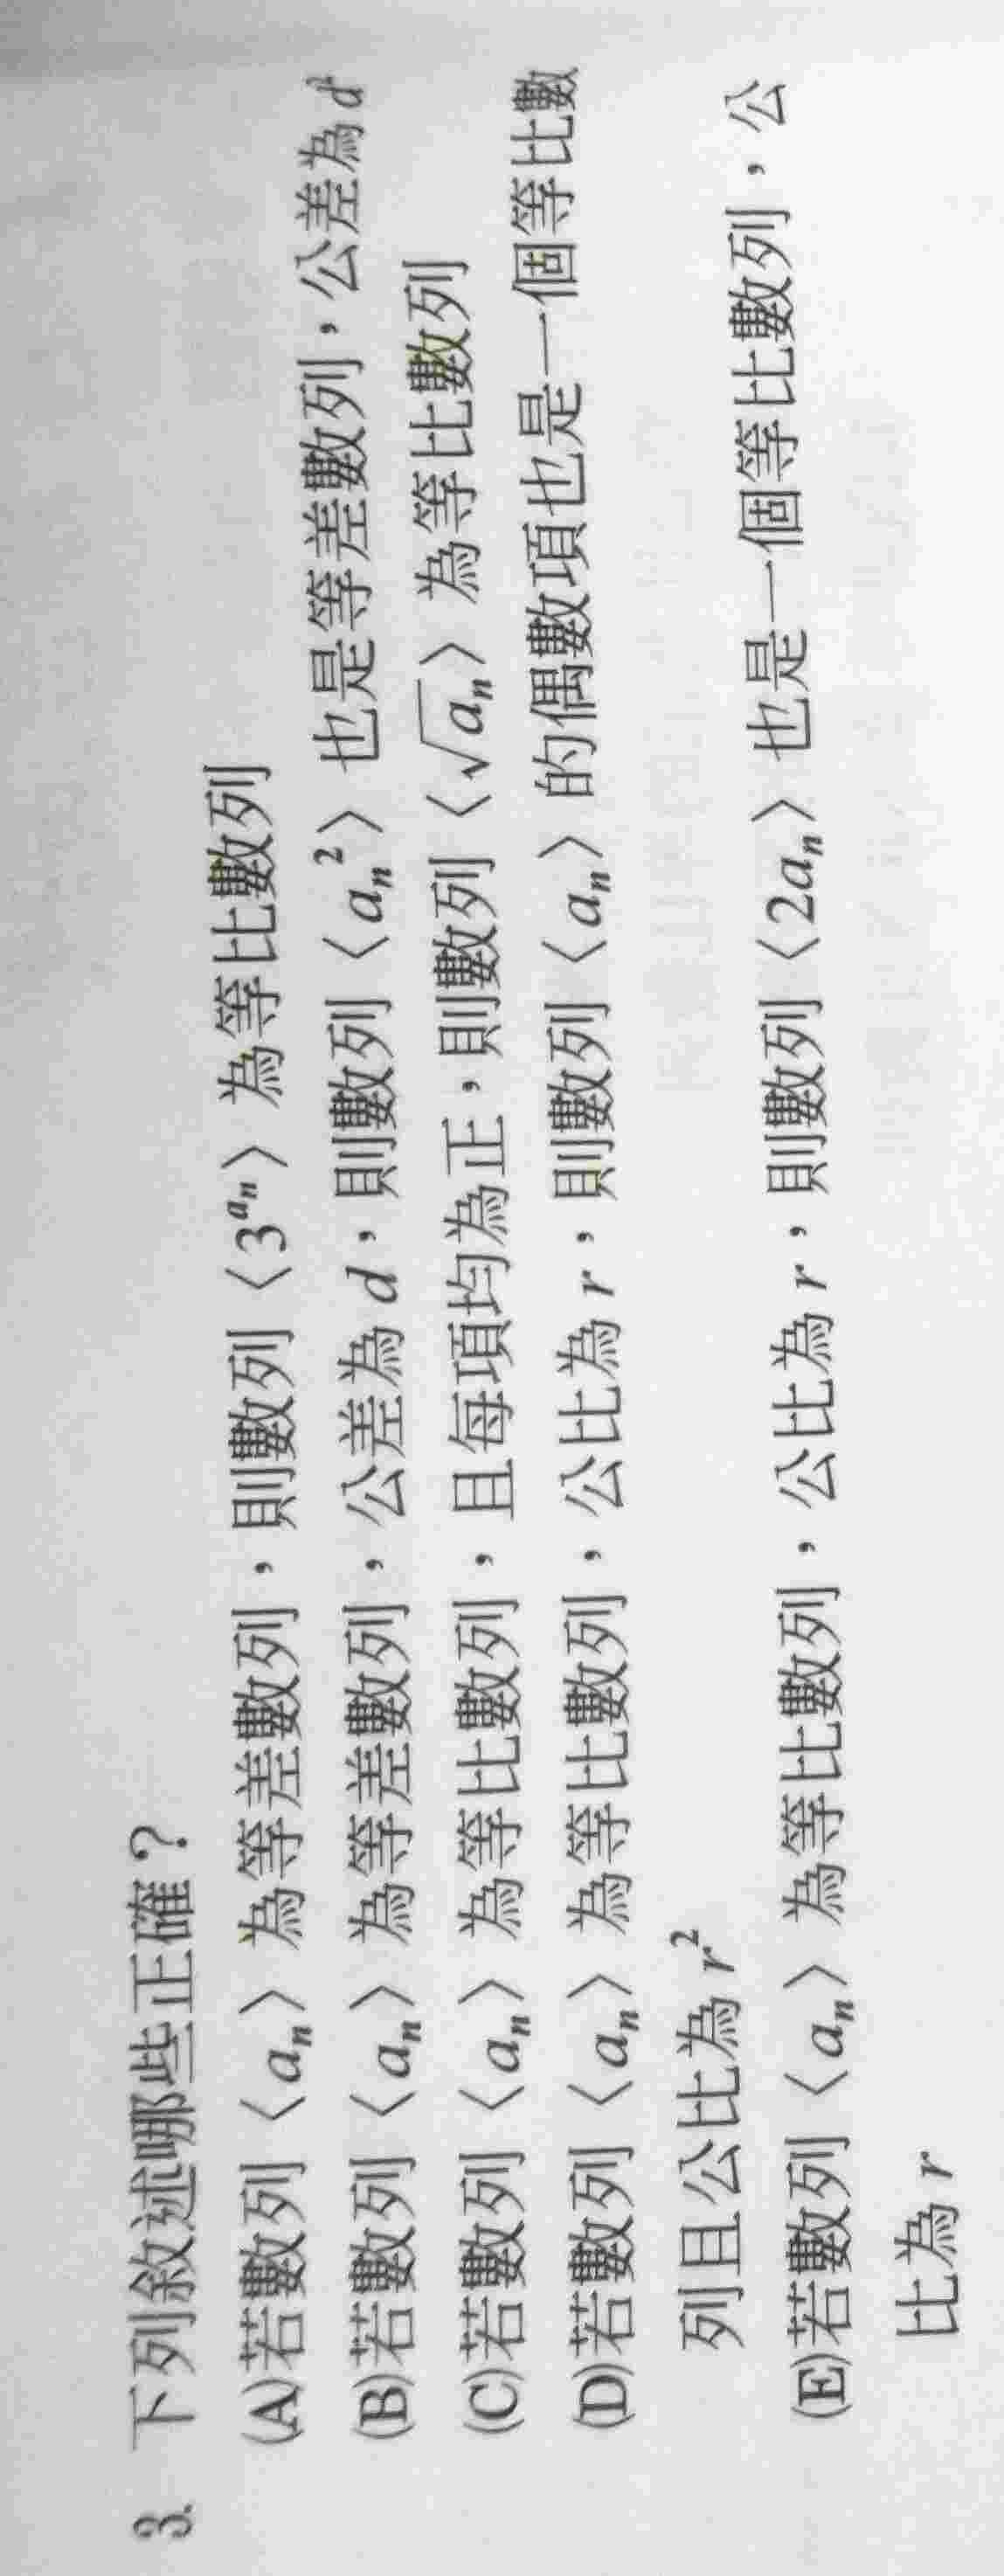 3. 下列敘述哪些正確？
(A)若數列〈aₙ〉為等差數列，則數列〈3^{aₙ}〉為等比數列
(B)若數列〈aₙ〉為等差數列，公差為 d，則數列〈aₙ²〉也是等差數列，公差為 d²
(C)若數列〈aₙ〉為等比數列，且每項均為正，則數列〈√aₙ〉為等比數列
(D)若數列〈aₙ〉為等比數列，公比為 r，則數列〈aₙ〉的偶數項也是一個等比數
列且公比為 r²
(E)若數列〈aₙ〉為等比數列，公比為 r，則數列〈2aₙ〉也是一個等比數列，公
比為 r